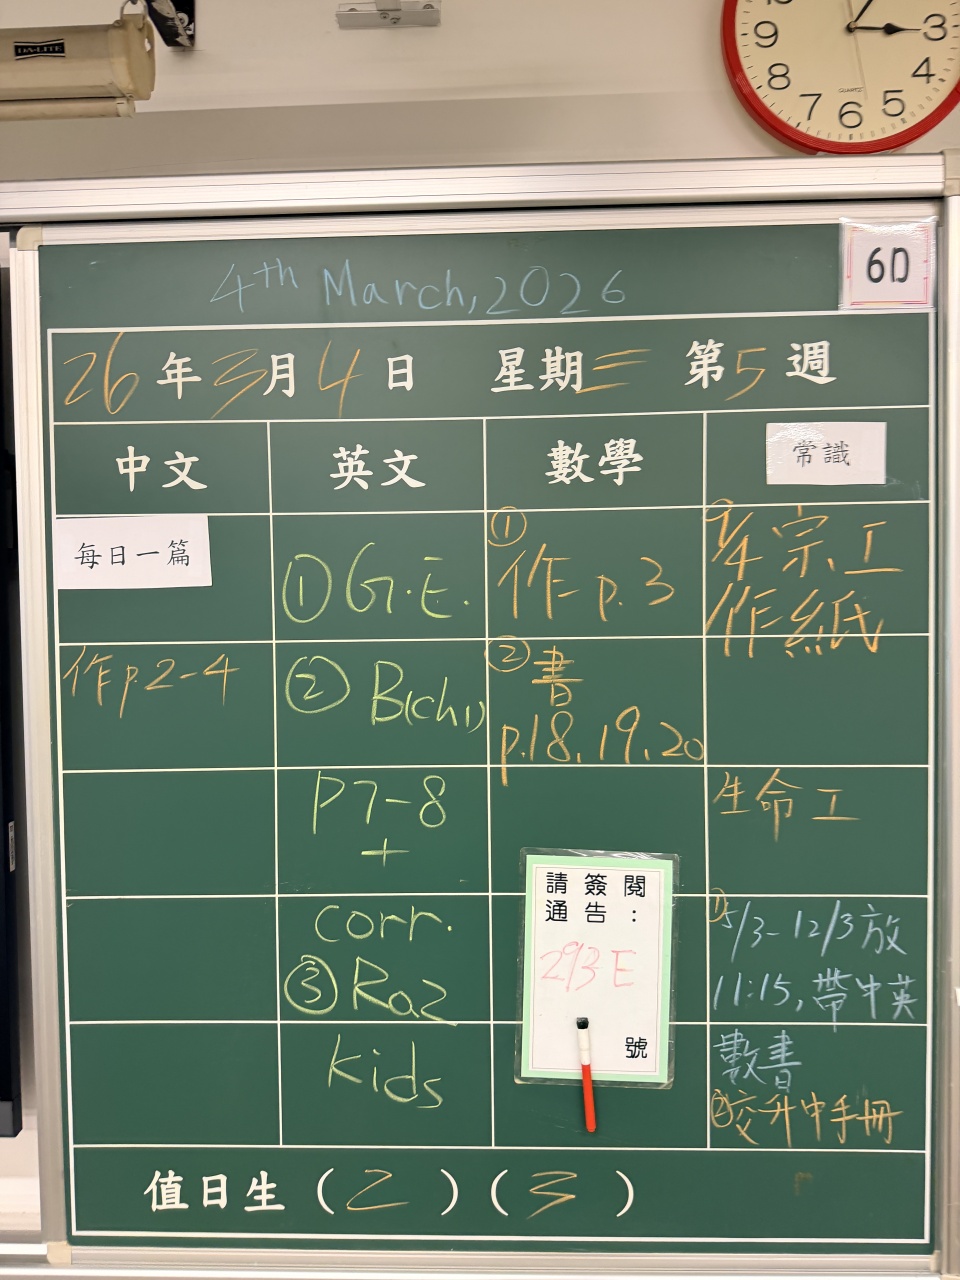 DA-LITE
9
3
8
4
7
6
5
QUARTZ
6D
4th March, 2026
26年3月4日 星期三 第5週
中文
英文
數學
常識
每日一篇
作p.2-4
①G.E.
②B(ch1)
P7-8
+
corr.
③Raz
kids
①
作p.3
②書
p.18、19、20
9/4宗工
作紙
生命工
①5/3-12/3放
11:15,帶中英
數書
②交升中手冊
請簽閱
通告：
293E
號
值日生（2）（3）